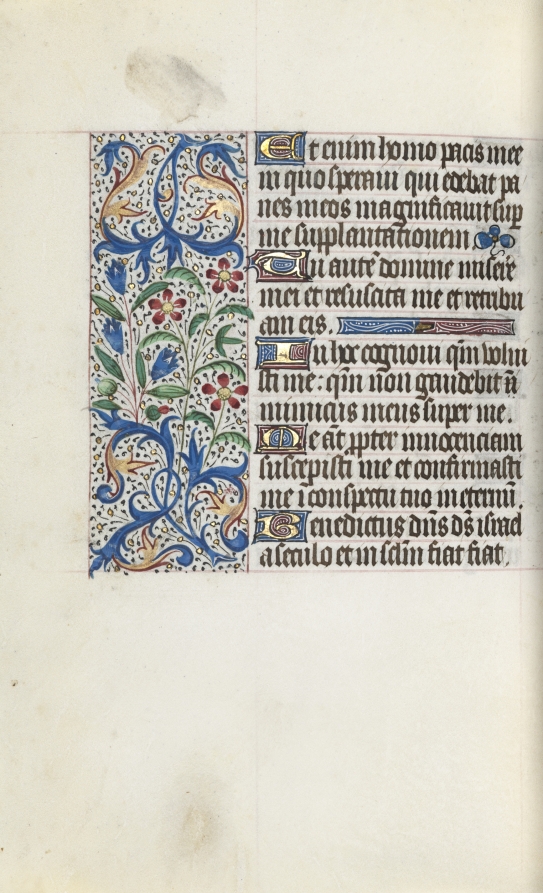 Et enim homo pacis mee
in quo speraui qui edebat pa
nes meos magnificauit sup
me supplantationem
Tu autē domine misere
mei et resuscita me et retribu
am eis.
In hoc cognoui qm̄ volui
sti me: qm̄ non gaudebit īi
inimicus meus super me.
Me aūt ꝓpter innocenciam
suscepisti me et confirmasti
me ī conspectu tuo in eternū.
Benedictus dn̄s ds̄ israel
a seculo et in sclm̄ fiat fiat.